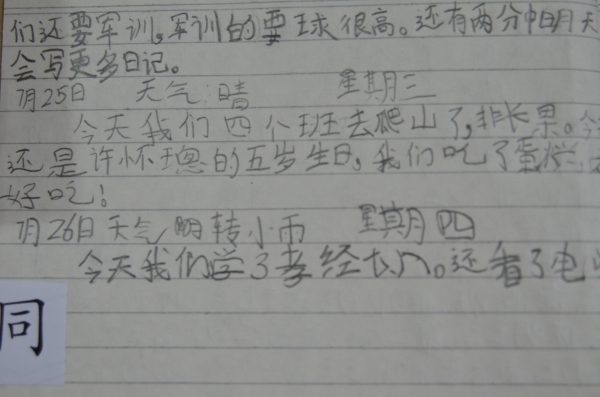 们还要军训,军训的要球很高。还有两分中明天
会写更多日记。
7月25日 天气:晴 星期三
今天我们四个班去爬山了,非长累。今
还是许怀璁的五岁生日,我们吃了蛋糕,
好吃!
7月26日 天气 阴转小雨 星期四
今天我们学了孝经七八。还看了电
同